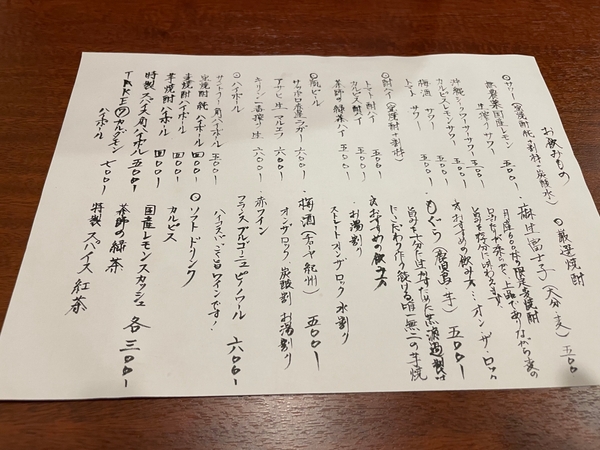 お飲みもの
◎ サワー (米焼酎 純の割材、炭酸水)
無農薬国産レモン
生搾りサワー 五〇〇
沖縄シークヮーサーサワー 五〇〇
カルピスレモンサワー 五〇〇
梅酒サワー 五〇〇
トマトサワー 五〇〇
◎ 酎ハイ (米焼酎の割材)
トマト酎ハイ 五〇〇
カルピス酎ハイ 五〇〇
茶師の緑茶ハイ 五〇〇
◎ 瓶ビール
サッポロ赤星ラガー 六〇〇
アサヒ生 マルエフ 六〇〇
キリン一番搾り生 六〇〇
◎ ハイボール
サントリー角ハイボール 五〇〇
米焼酎純ハイボール 四〇〇
麦焼酎ハイボール 四〇〇
芋焼酎ハイボール 四〇〇
特製スパイス角ハイボール 五〇〇
TAKEのカルダモン
ハイボール 七〇〇
◎ 厳選焼酎
麻田宮子 (大分・麦) 五〇〇
月産600本の限定麦焼酎
口あたりが柔らかで、上品でありながら麦の
旨みを存分に味わえます。
☆おすすめの飲み方…オン・ザ・ロック
・もぐら (鹿児島 芋) 五〇〇
にこだわり作り続ける唯一無二の芋焼
☆おすすめの飲み方
ストレート オン・ザ・ロック 水割り
お湯割り
・梅酒 (チョーヤ 紀州) 五〇〇
オンザロック 炭酸割 お湯割り
・赤ワイン
フランス ブルゴーニュ ピノノワール 六〇〇
◎ ソフトドリンク
カルピス
国産レモンスカッシュ 各 三〇〇
茶師の緑茶
特製スパイス紅茶